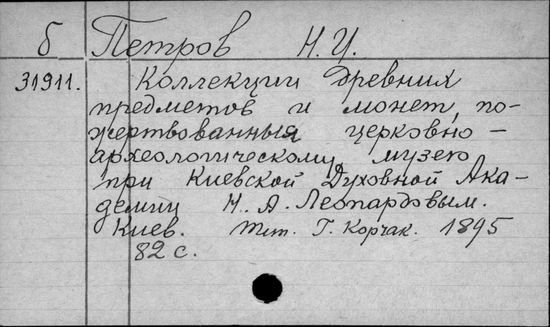 б Петров Н.И.
31911. Коллекции древних
предметов и монет, по-
жертвованныя церковно-
археологическому музею
при Киевской Духовной Ака-
демии Н. А. Леопардовым.
Киев. Тип. Г. Корчак. 1895
82 с.